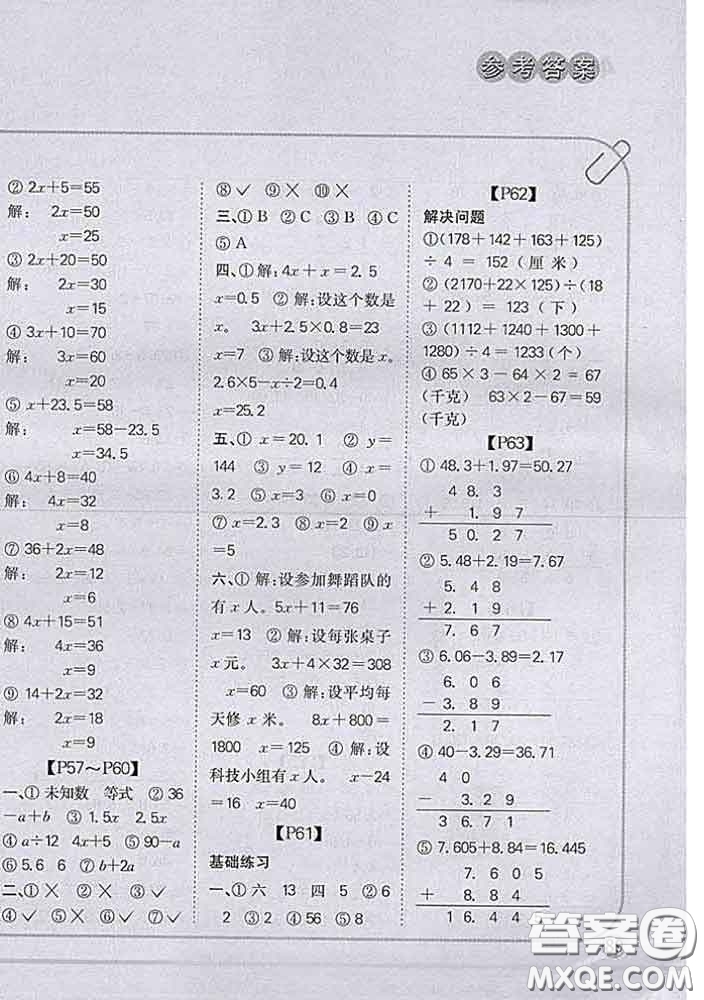 参考答案
② 2x+5=55
解： 2x=50
x=25
③ 2x+20=50
解： 2x=30
x=15
④ 3x+10=70
解： 3x=60
x=20
⑤ x+23.5=58
解： x=58-23.5
x=34.5
⑥ 4x+8=40
解： 4x=32
x=8
⑦ 36+2x=48
解： 2x=12
x=6
⑧ 4x+15=51
解： 4x=36
x=9
⑨ 14+2x=32
解： 2x=18
x=9
【P57～P60】
一、① 未知数 等式 ② 36
-a+b ③ 1.5x 2.5x
④ a÷12 4x+5 ⑤ 90-a
⑥ 5.6 6 ⑦ b+2a
二、①× ②× ③✓
④✓ ⑤× ⑥✓ ⑦✓
⑧✓ ⑨× ⑩×
三、① B ② C ③ B ④ C
⑤ A
四、① 解：4x+x=2.5
x=0.5 ② 解：设这个数是
x。 3x+2.5×0.8=23
x=7 ③ 解：设这个数是 x。
2.6×5-x÷2=0.4
x=25.2
五、① x=20.1 ② y=
144 ③ y=12 ④ x=
3.2 ⑤ x=5 ⑥ x=3
⑦ x=2.3 ⑧ x=2 ⑨ x
=5
六、① 解：设参加舞蹈队的
有 x 人。 5x+11=76
x=13 ② 解：设每张桌子
x 元。 2x+4×32=308
x=60 ③ 解：设平均每
天修 x 米。 8x+800=
1800 x=125 ④ 解：设
科技小组有 x 人。 x-24
=16 x=40
【P61】
基础练习
一、① 六 13 四 5 ② 6
2 ③ 2 ④ 56 ⑤ 8
【P62】
解决问题
①(178+142+163+125)
÷4=152(厘米)
②(2170+22×125)÷(18
+22)=123(下)
③(1112+1240+1300+
1280)÷4=1233(个)
④ 65×3-64×2=67
(千克) 63×2-67=59
(千克)
【P63】
① 48.3+1.97=50.27
48.3
+ 1.97
50.27
② 5.48+2.19=7.67
5.48
+2.19
7.67
③ 6.06-3.89=2.17
6.06
-3.89
2.17
④ 40-3.29=36.71
40
- 3.29
36.71
⑤ 7.605+8.84=16.445
7.605
+ 8.84
16.44
答案圈
MXQE.COM